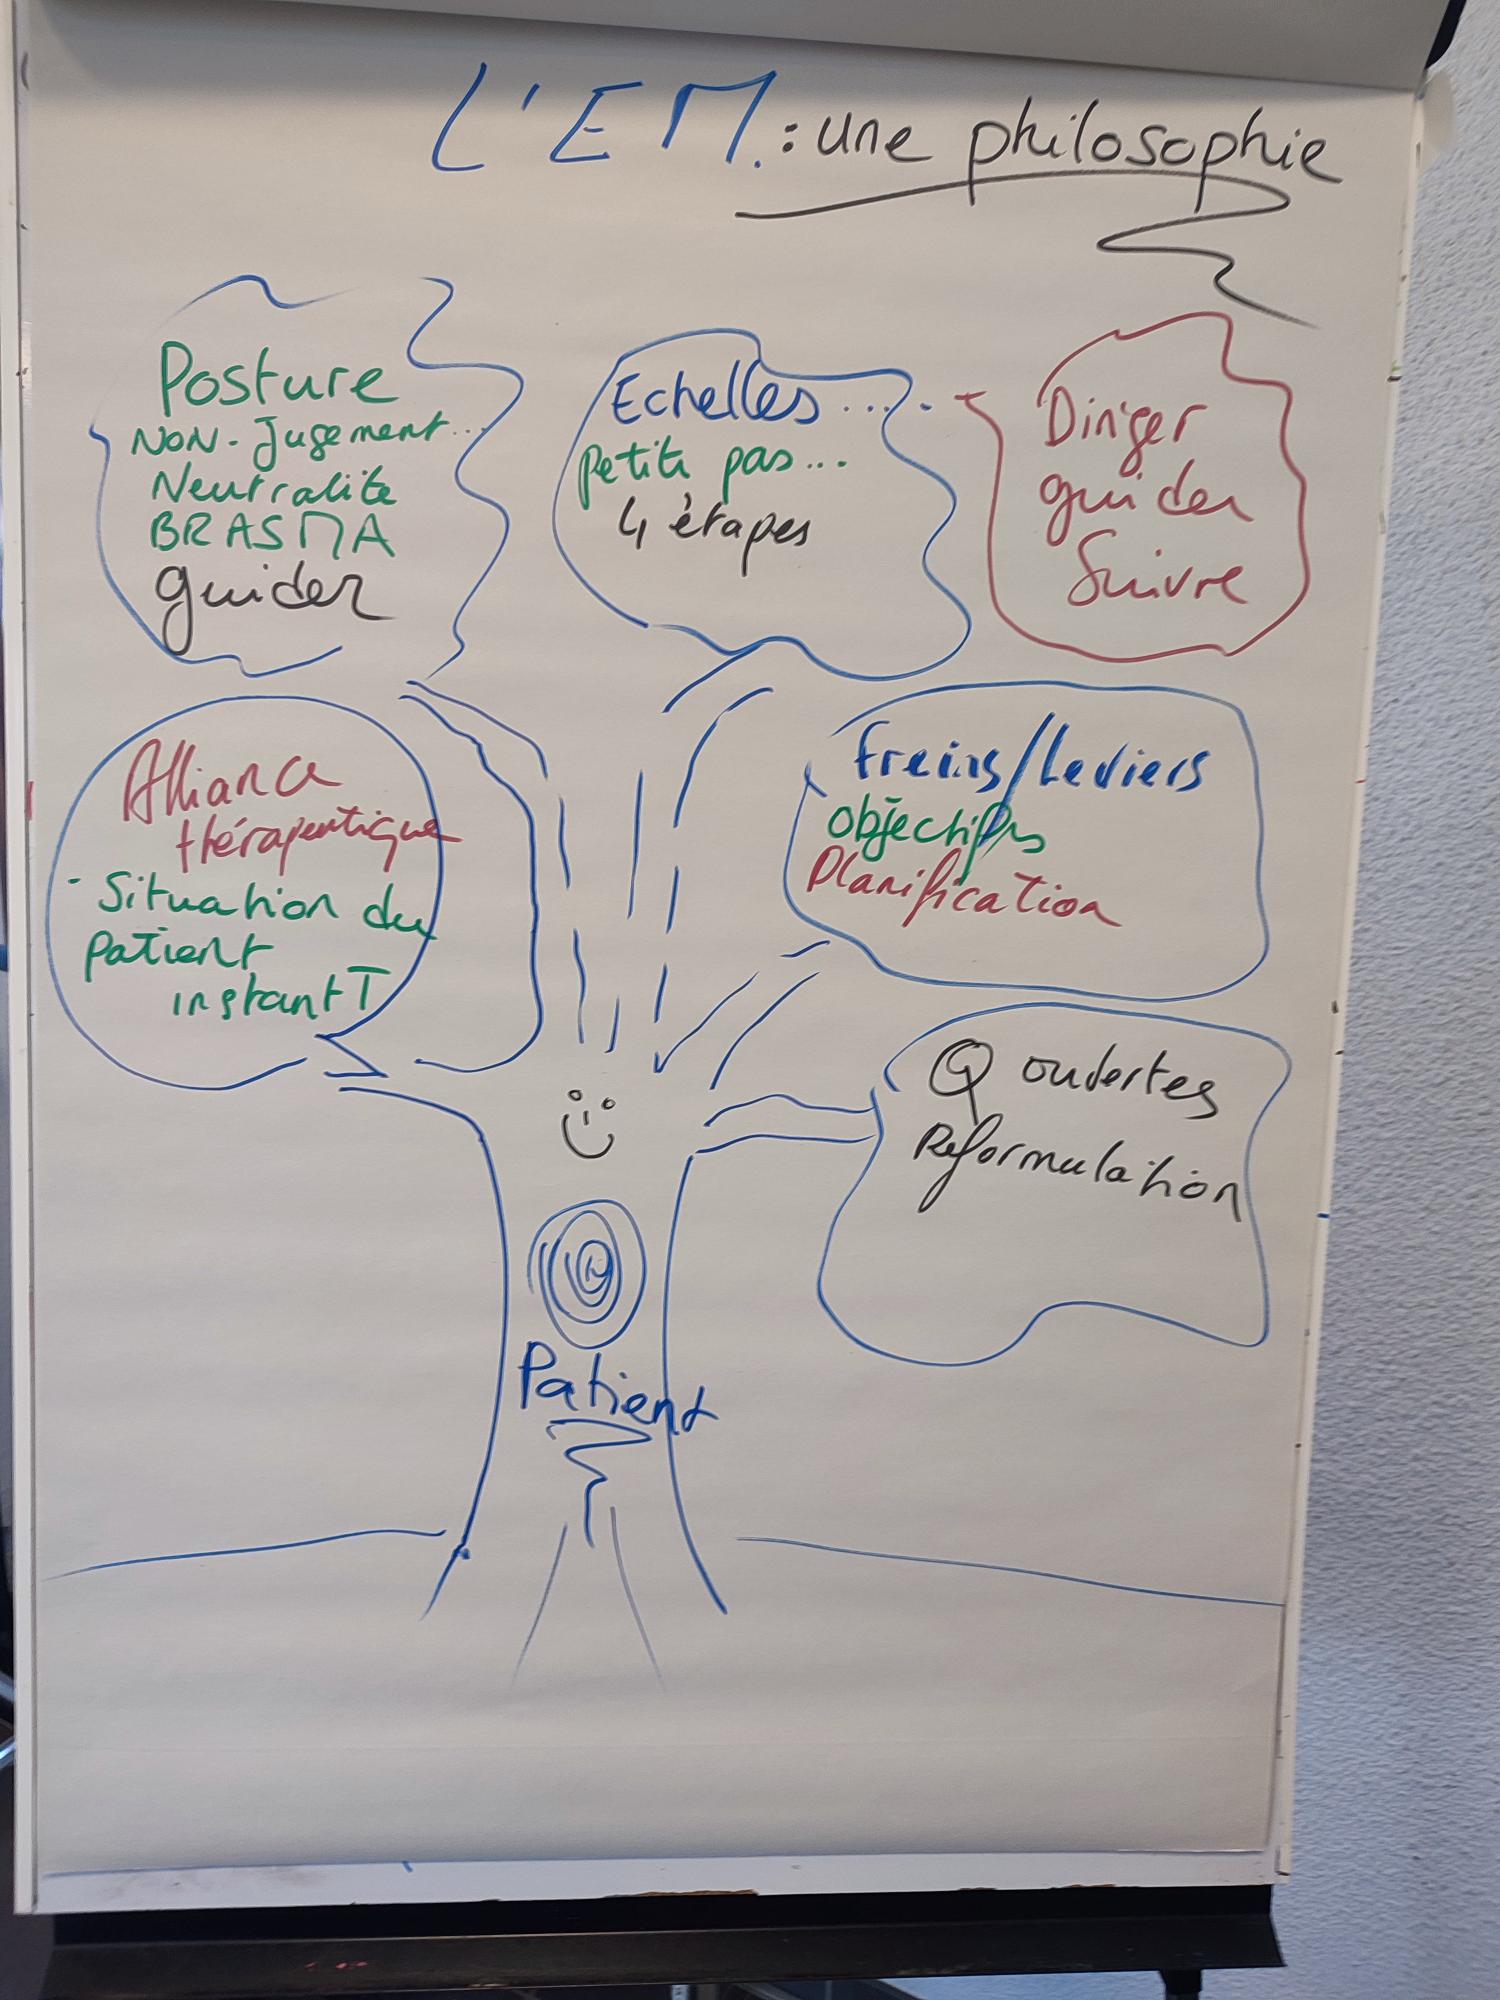 L'EM. : une philosophie
Posture
Non-Jugement...
Neutralité
BRASMA
guider
Echelles...
petits pas...
4 étapes
Diriger
guider
Suivre
Alliance
thérapeutique
- Situation du
patient
instant T
Freins/Leviers
Objectifs
Planification
Q ouvertes
Reformulation
Patient